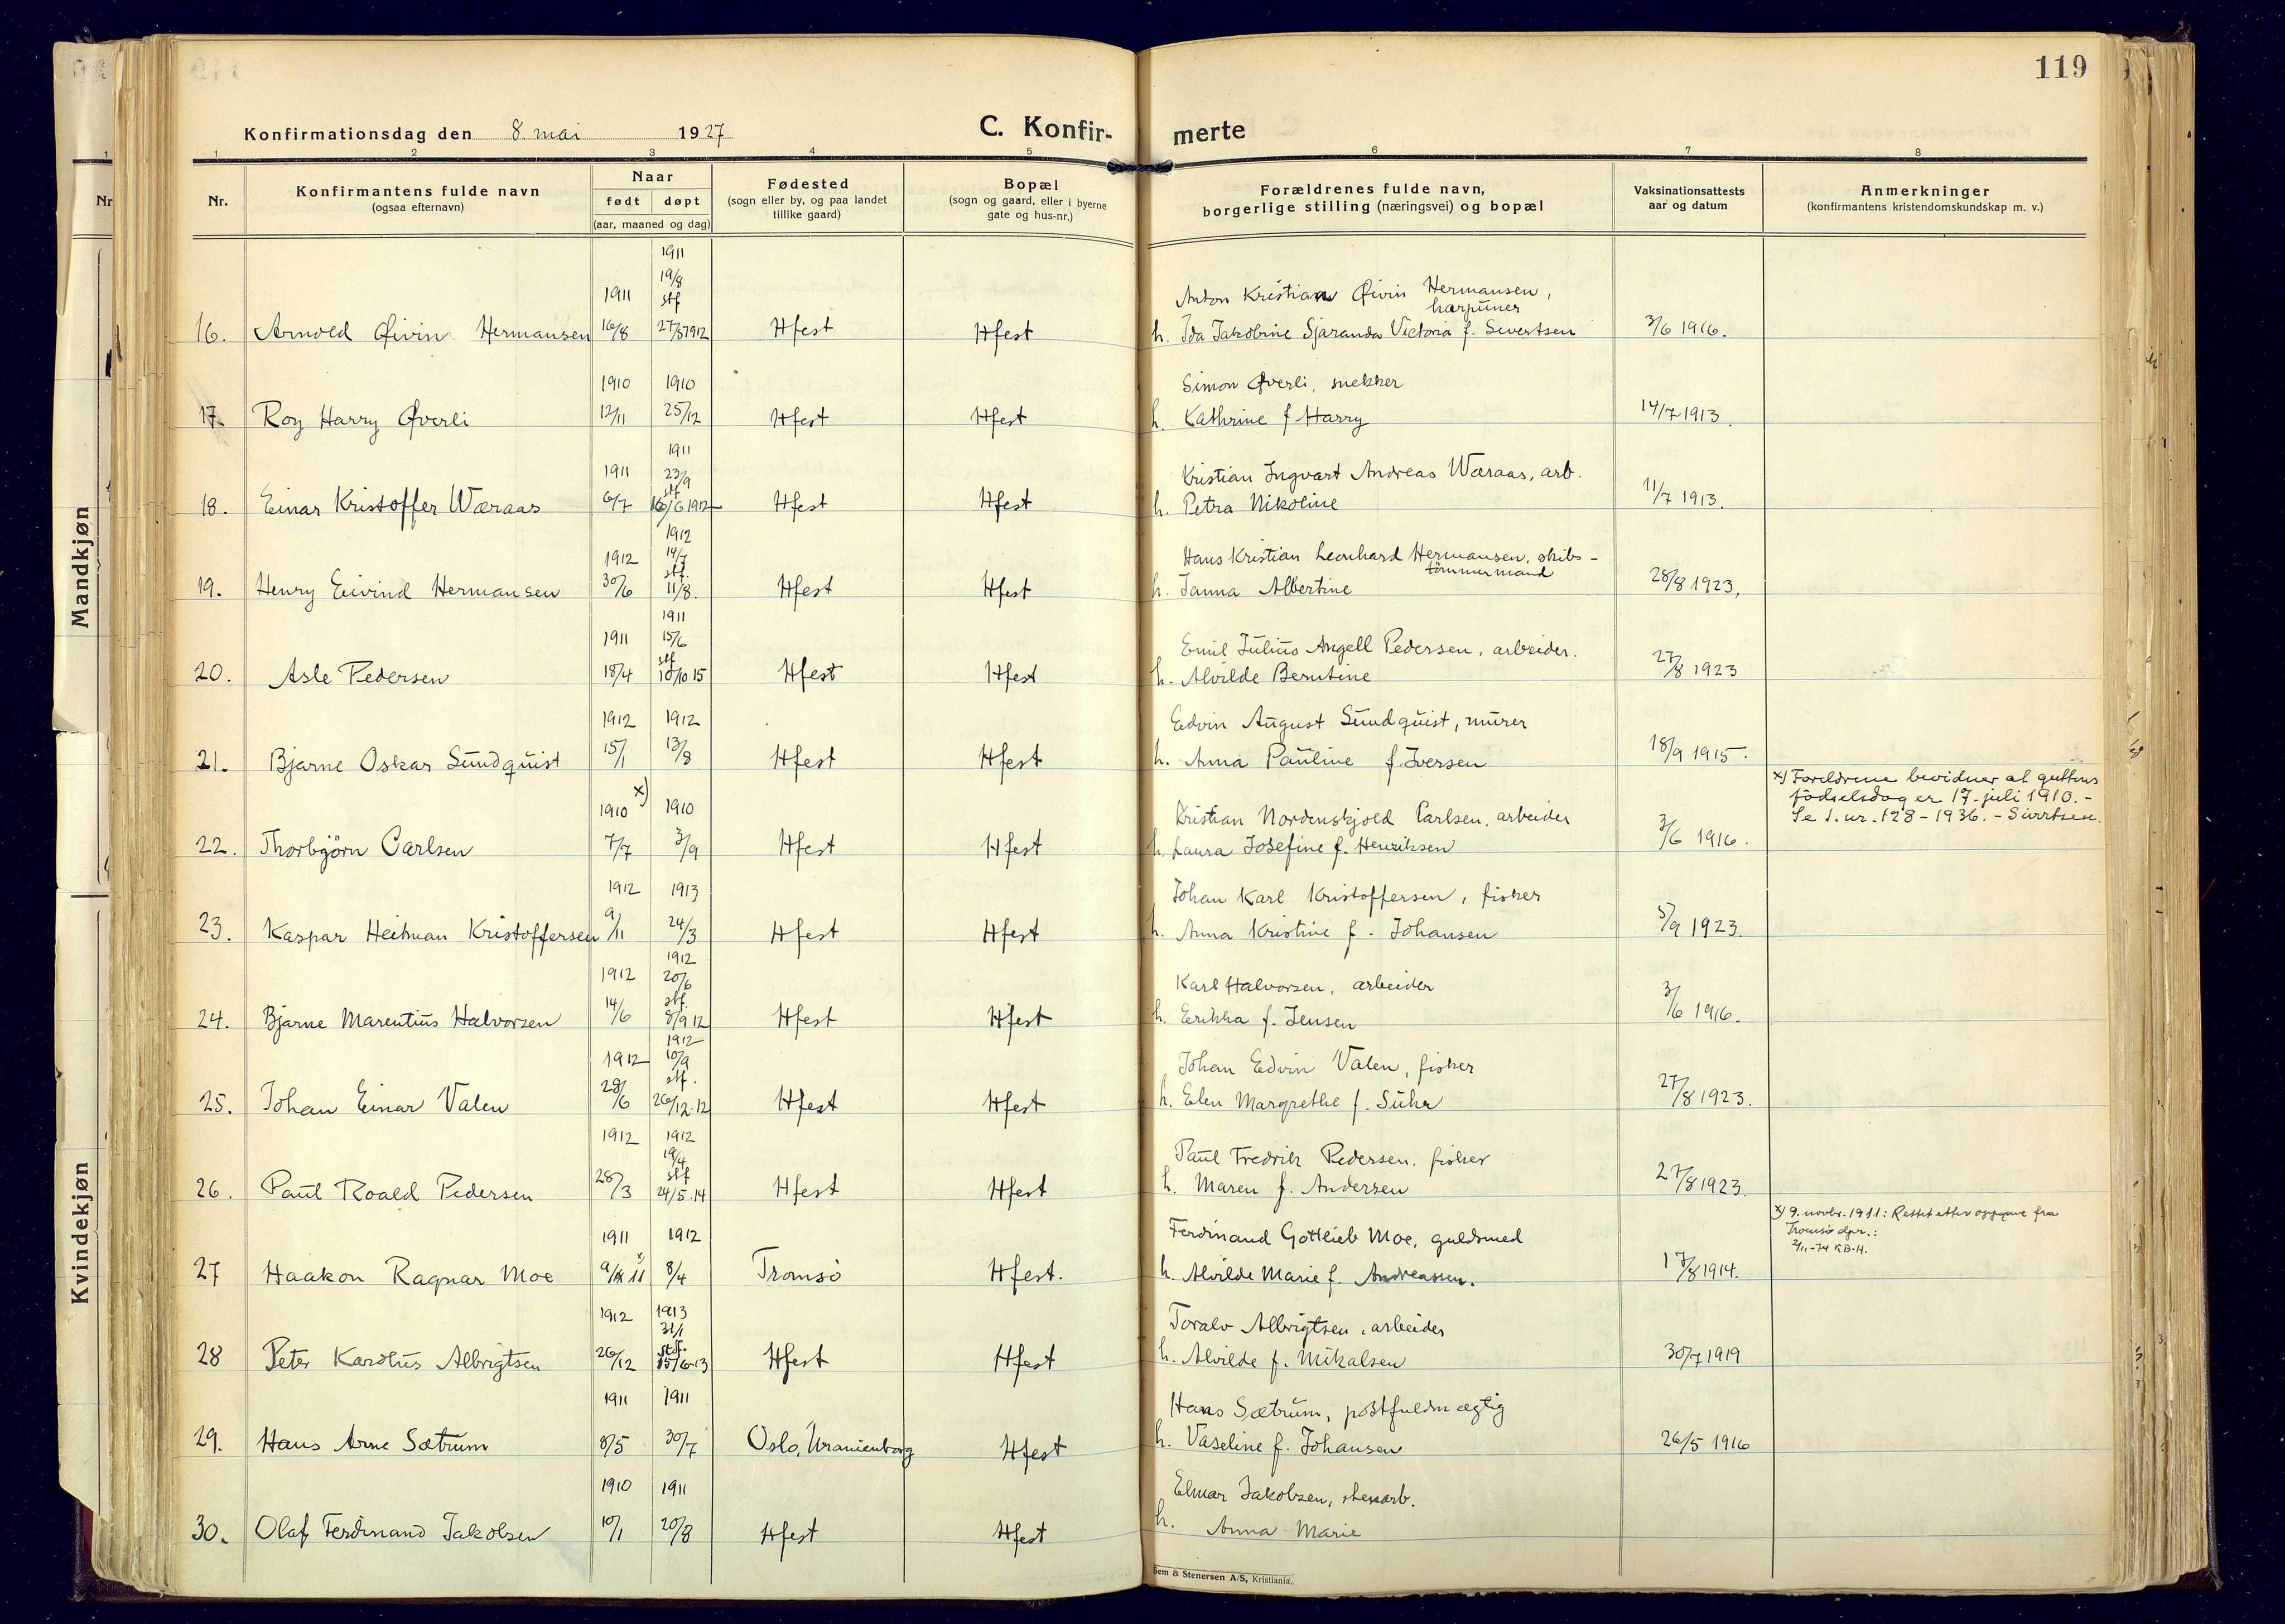 119
Konfirmationsdag den 8. mai 1927
C. Konfir-
merte
1 2 3 4 5 6 7 8
Nr.
Konfirmantens fulde navn
(ogsaa efternavn)
Naar
født døpt
(aar, maaned og dag)
Fødested
(sogn eller by, og paa landet
tillike gaard)
Bopæl
(sogn og gaard, eller i byerne
gate og hus-nr.)
Forældrenes fulde navn,
borgerlige stilling (næringsvei) og bopæl
Vaksinationsattests
aar og datum
Anmerkninger
(konfirmantens kristendomskundskap m. v.)
Mandkjøn
Kvindekjøn
1911
19/8
1911 stf
Anton Kristian Øivin Hermansen,
harpuner
16. Arnold Øivin Hermansen 16/8 27/5 1912 Hfest Hfest h. Ida Jakobine Sjaranda Victoria f. Sivertsen 3/6 1916.
1910 1910 Simon Øverli, snekker
17. Roy Harry Øverli 12/11 25/12 Hfest Hfest h. Kathrine f Harry 14/7 1913.
1911
1911 23/9 Kristian Ingvart Andreas Wæraas, arb.
stf
18. Einar Kristoffer Wæraas 6/7 16/6 1912 Hfest Hfest h. Petra Nikoline 11/7 1913.
1912
1912 14/7 Hans Kristian Leonhard Hermansen, skibs-
stf. tömmermand
19. Henry Eivind Hermansen 30/6 11/8. Hfest Hfest h. Janna Albertine 28/8 1923,
1911
1911 15/6 Emil Julius Angell Pedersen, arbeider.
stf
20. Asle Pedersen 18/4 10/10 15 Hfest Hfest h. Alvilde Berntine 27/8 1923
1912 1912 Edvin August Sundquist, murer
21. Bjarne Oskar Sundquist 15/1 13/8 Hfest Hfest h. Anna Pauline f. Iversen 18/9 1915.
x) Foreldrene bevidner at guttens
fødselsdag er 17. juli 1910.-
Se J. nr. 128-1936.-
1910 x) 1910 Kristian Nordenskjold Carlsen, arbeider
22. Thorbjörn Carlsen 7/7 3/9 Hfest Hfest h. Laura Josefine f. Henriksen 3/6 1916.
1912 1913 Johan Karl Kristoffersen, fisker
23. Kaspar Heitman Kristoffersen 9/11 24/3 Hfest Hfest h. Anna Kristine f. Johansen 5/9 1923.
1912
1912 20/6 Karl Halvorsen, arbeider
stf.
24. Bjarne Marentius Halvorsen 14/6 8/9 12 Hfest Hfest h. Erikka f. Jensen 3/6 1916.
1912
1912 10/9 Johan Edvin Valen, fisker
stf.
25. Johan Einar Valen 28/6 26/12.12 Hfest Hfest h. Elen Margrethe f. Suhr 27/8 1923.
1912 1912
19/4 Paul Fredrik Pedersen, fisker
stf
26. Paul Roald Pedersen 28/3 24/5.14 Hfest Hfest h. Maren f. Andersen 27/8 1923.
x) 9. novbr. 1911: Rettet etter oppgave fra
Tromsø dpr.:
2/11-74 KB-H.
1911 1912 Ferdinand Gottlieb Moe, guldsmed
27 Haakon Ragnar Moe 9/11 x 8/4 Tromsö Hfest. h. Alvilde Marie f. Andreassen. 17/8 1914.
1912 1913
31/1 Toralv Albrigtsen, arbeider
stdf.
28 Peter Kardius Albrigtsen 26/12 15/6-13 Hfest Hfest h. Alvilde f. Mikalsen 30/7 1919
1911 1911 Hans Sætrum, postfuldmægtig
29. Hans Arne Sætrum 8/5 30/7 Oslo, Uranienborg Hfest h. Vaseline f. Johansen 26/5 1916
1910 1911 Elmar Jakobsen, stenarb.
30. Olaf Ferdinand Jakobsen 10/1 20/8 Hfest Hfest h. Anna Marie
Sem & Stenersen A/S, Kristiania.